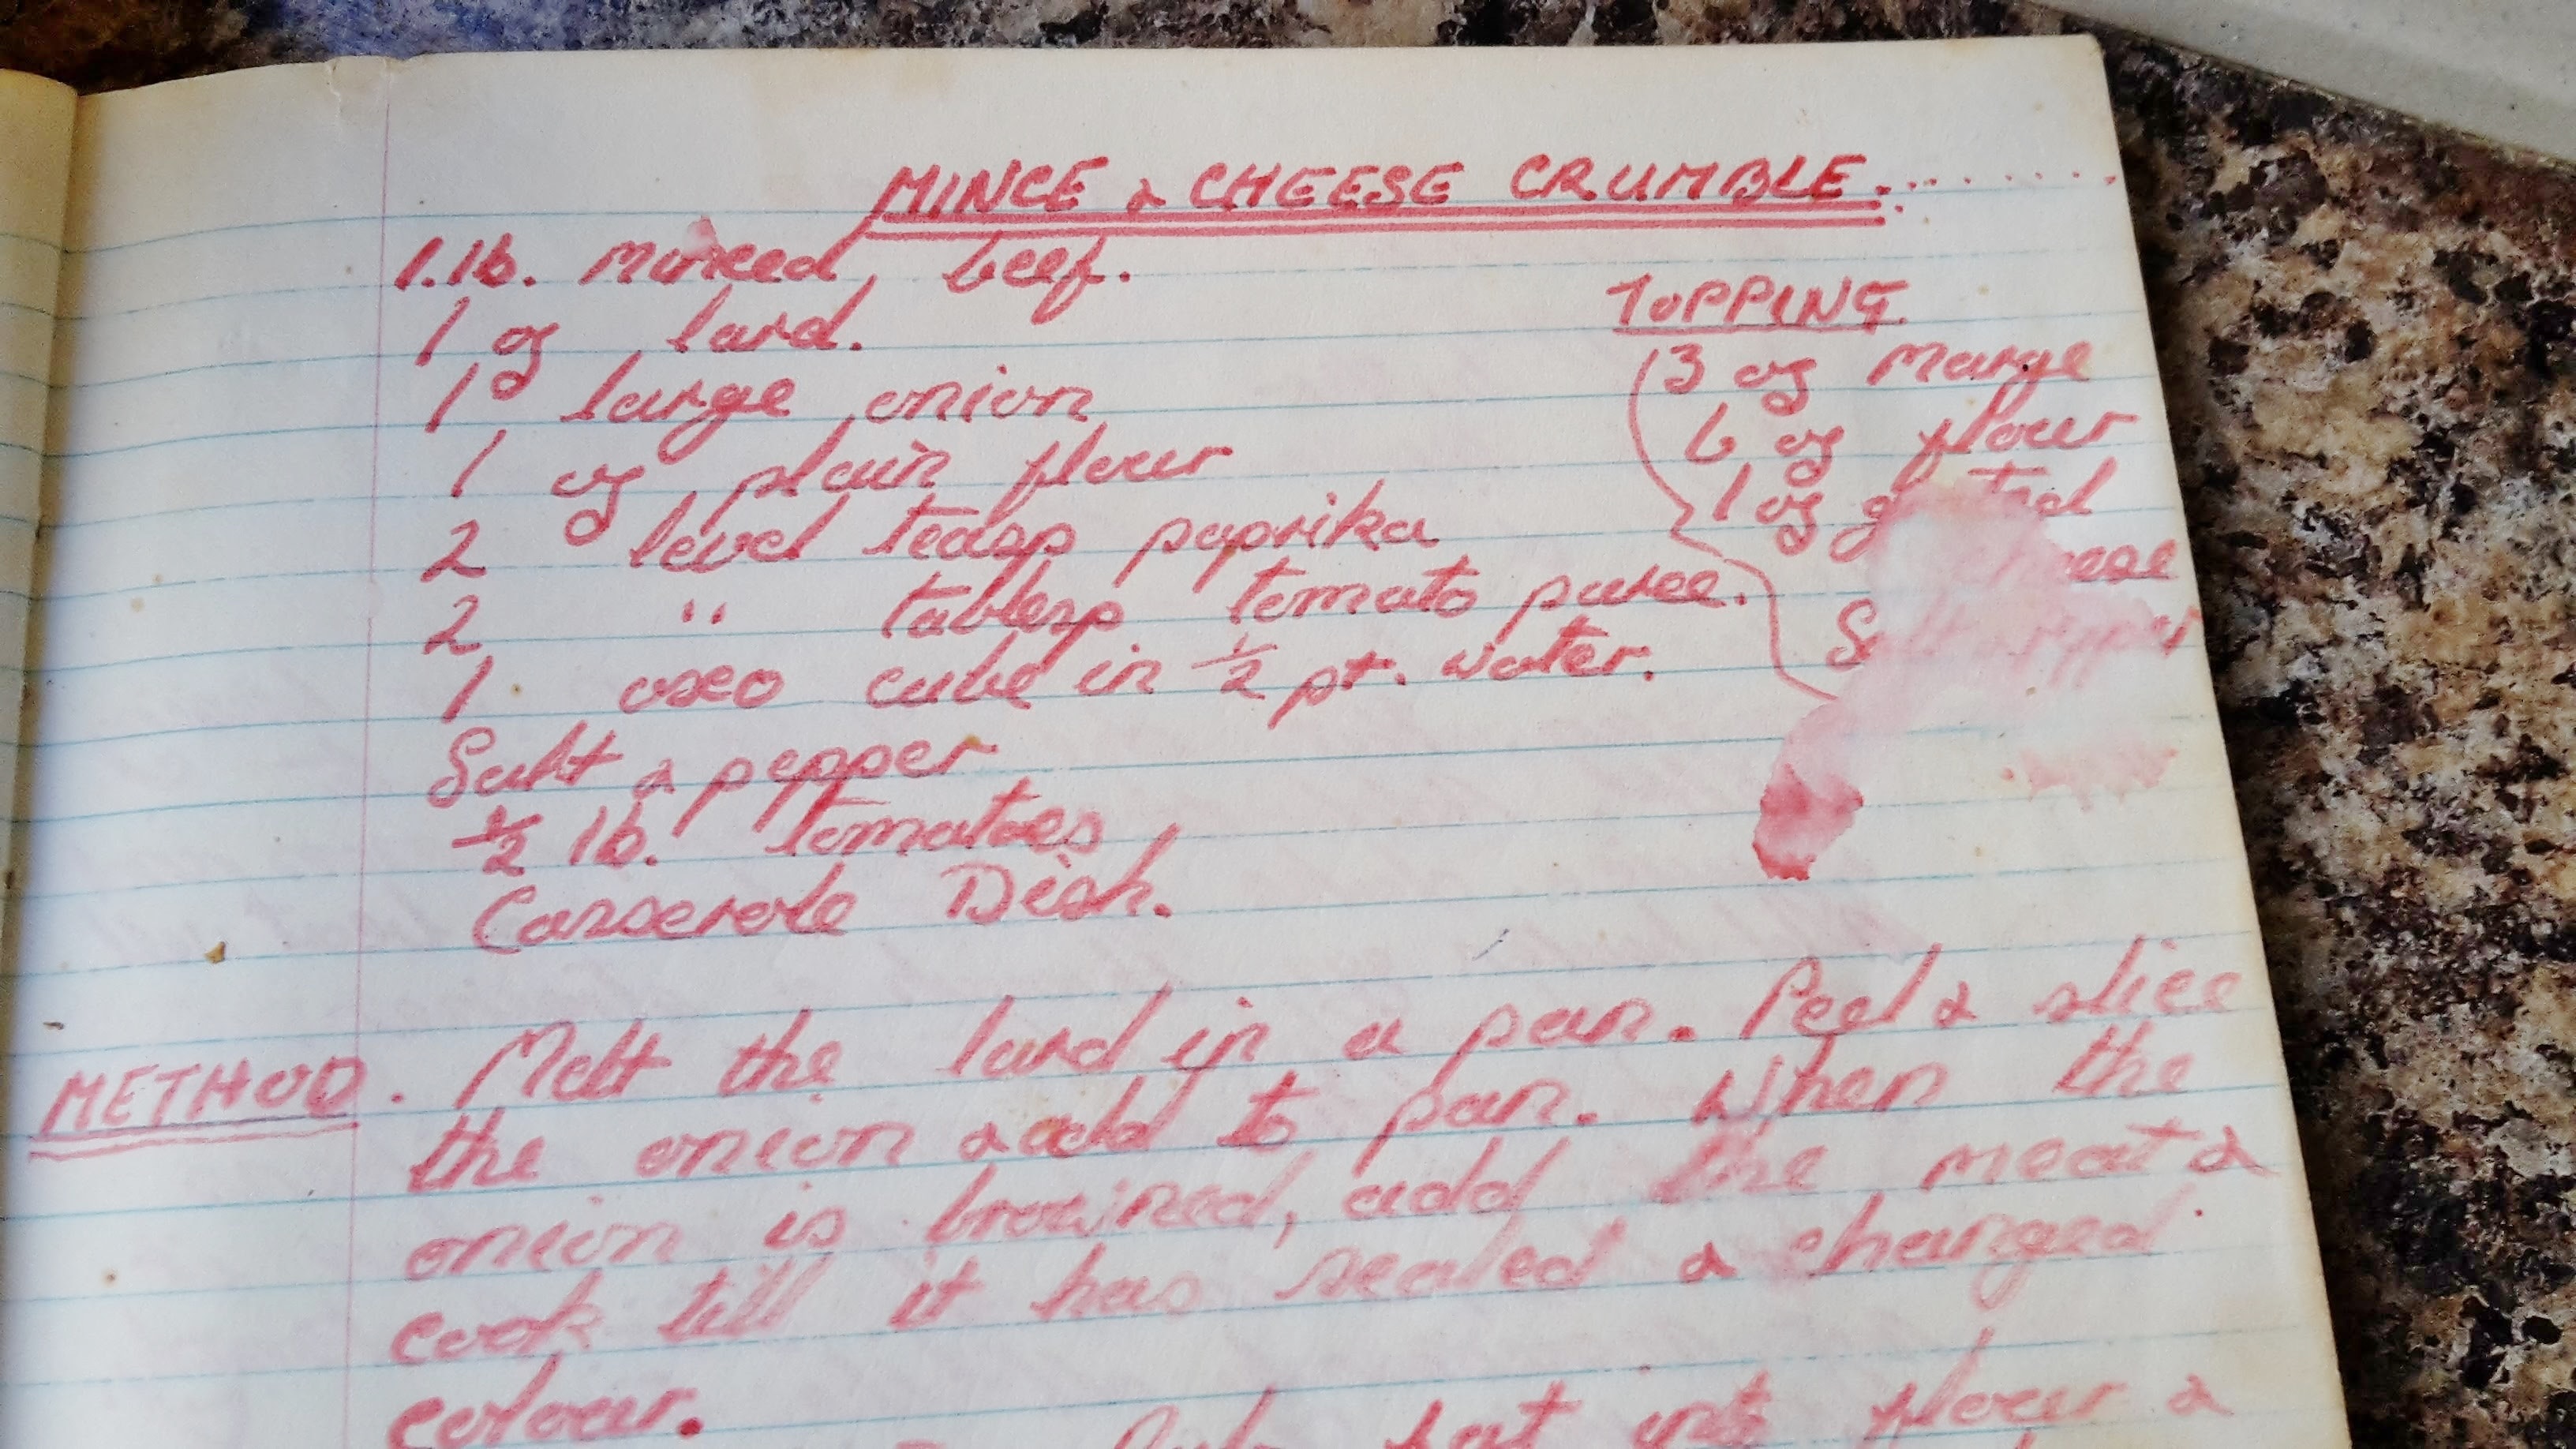 MINCE & CHEESE CRUMBLE.........
1.lb. minced beef.
1 oz lard.
1 large onion
1 oz plain flour
2 level teasp paprika
2 " tablesp tomato puree.
1 oxo cube in ½ pt. water.
Salt & pepper
½ lb. tomatoes
Casserole Dish.
TOPPING.
3 oz marge
6 oz flour
1 oz grated
cheese
Salt & pepper
METHOD. Melt the lard in a pan. Peel & slice
the onion & add to pan. When the
onion is browned, add the meat &
cook till it has sealed & changed
colour.
fat into flour &